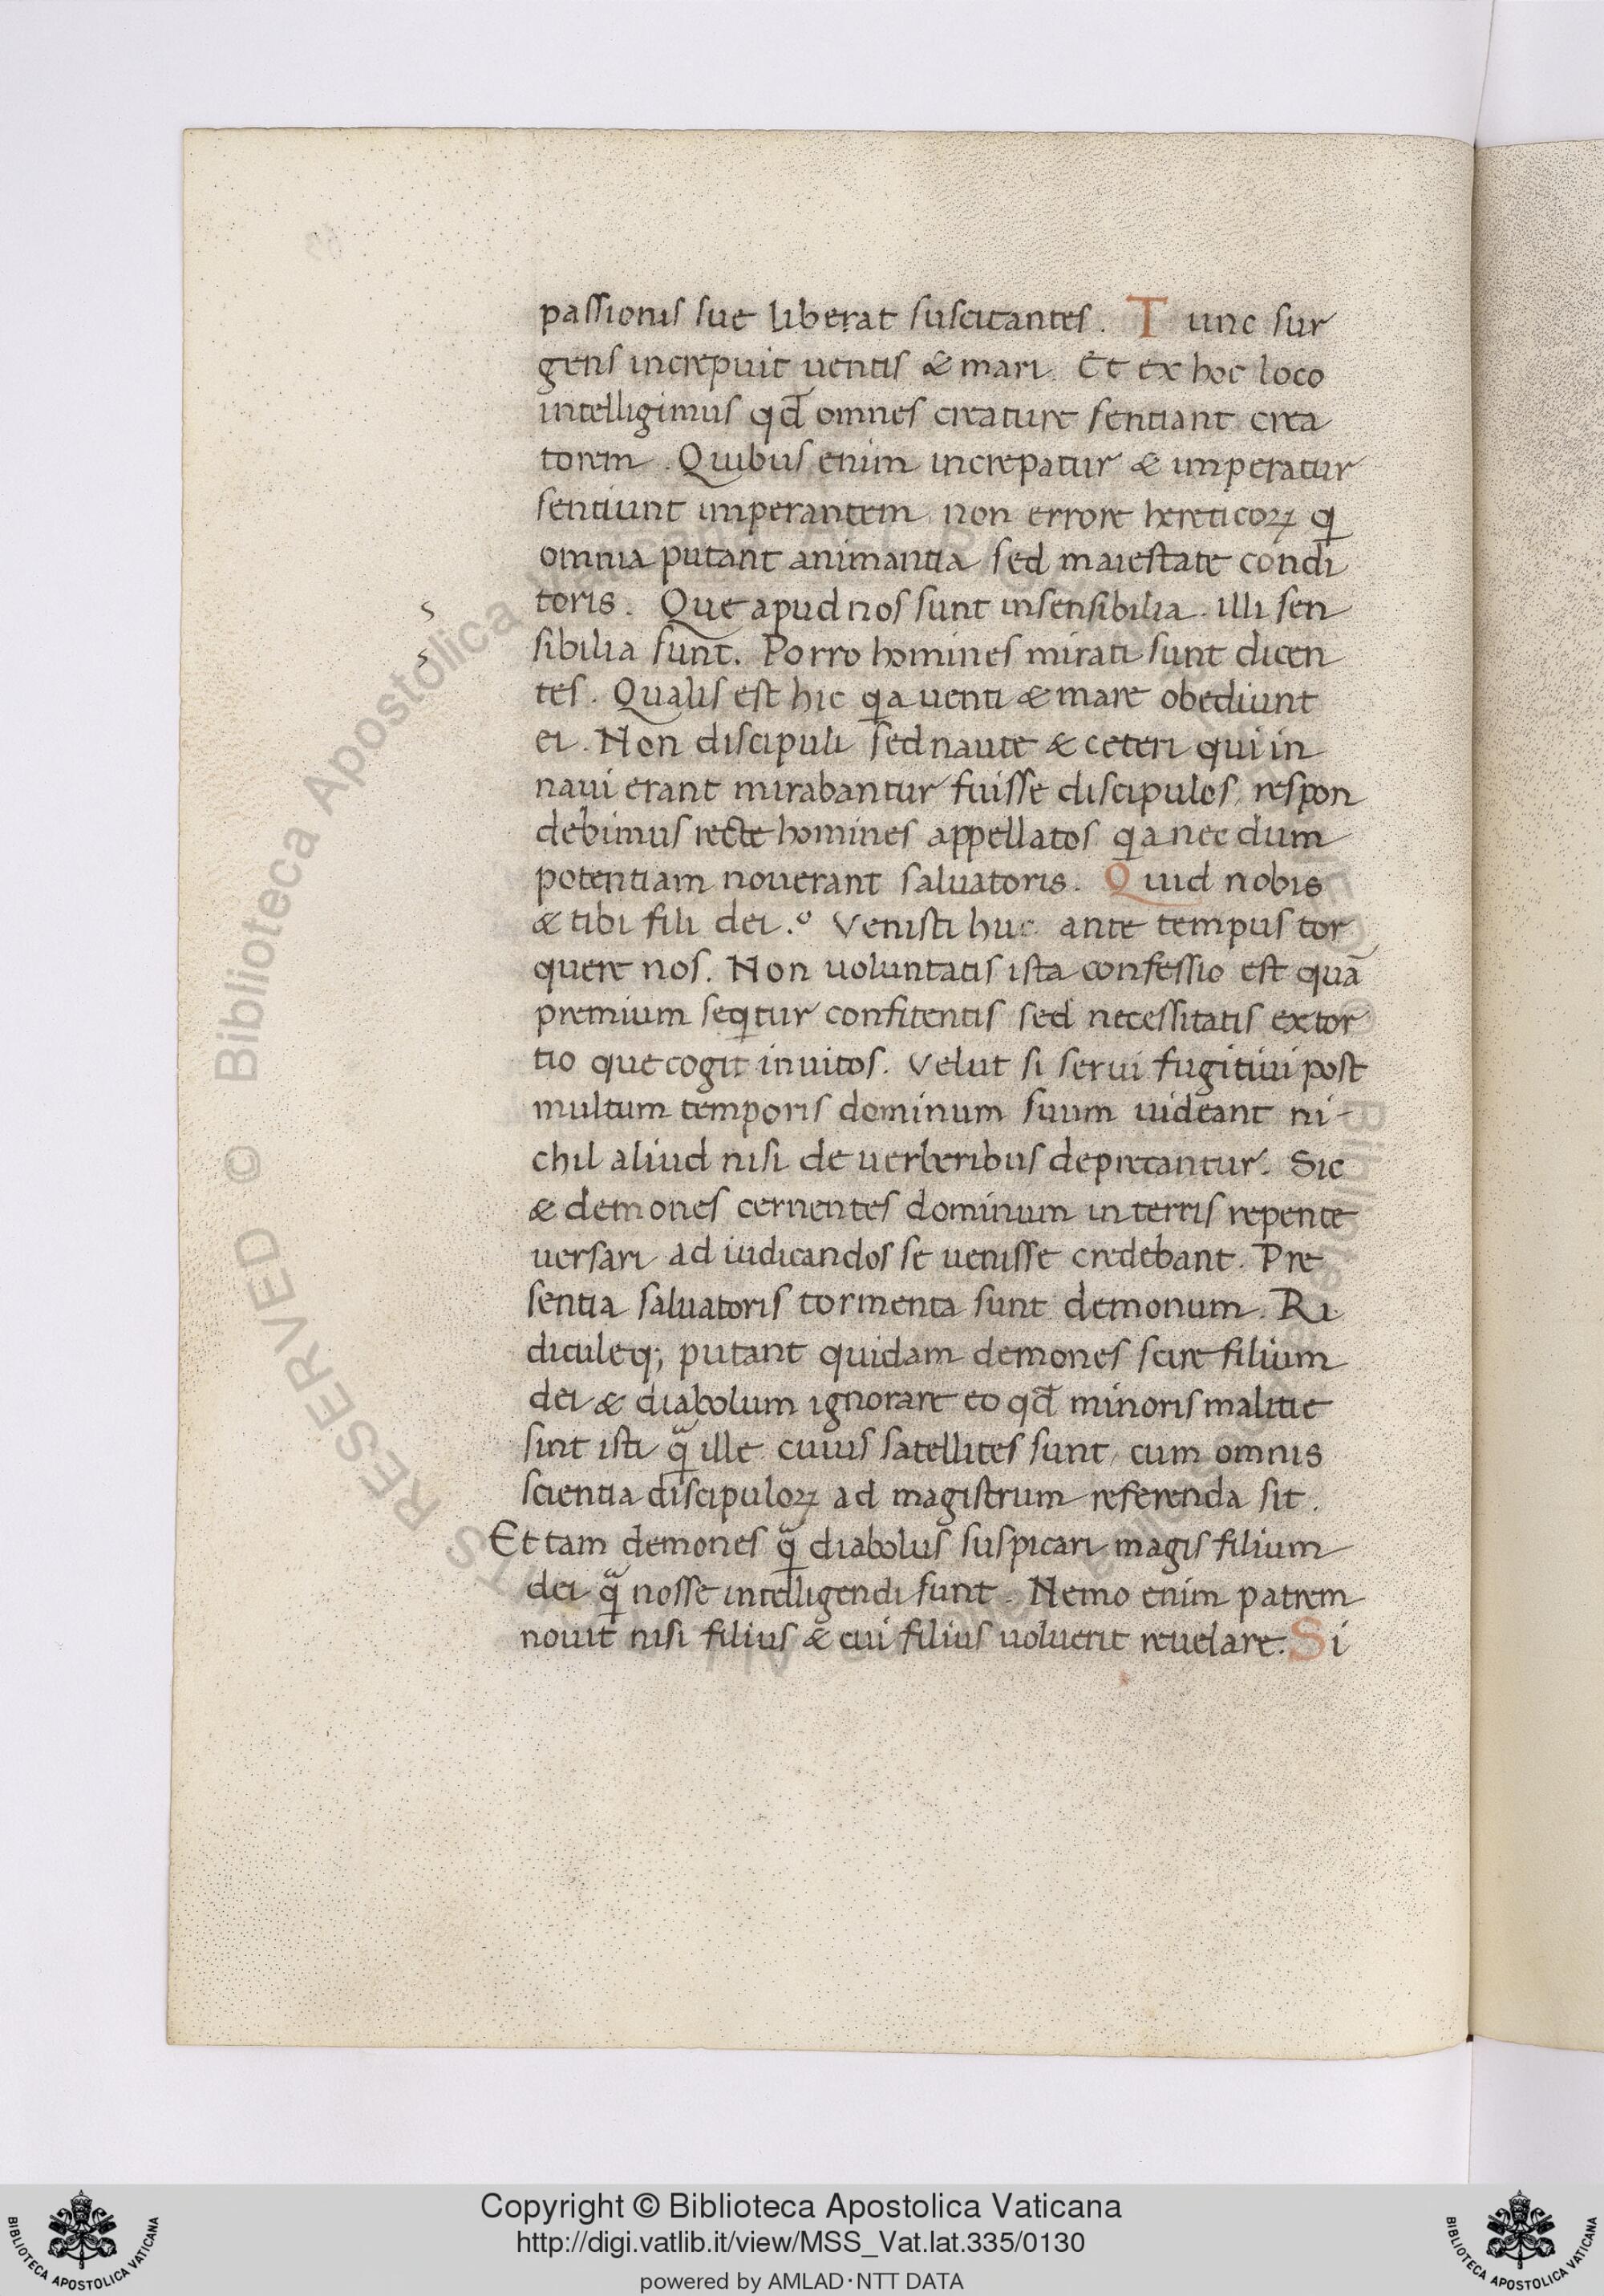 passionis sue liberat suscitantes. Tunc sur
gens increpuit uentis & mari. Et ex hoc loco
intelligimus qd̄ omnes creature sentiant crea
torem. Quibus enim increpatur & imperatur
sentiunt imperantem non errore hereticoꝝ q
omnia putant animantia sed maiestate condi
toris. Que apud nos sunt insensibilia. illi sen
sibilia sunt. Porro homines mirati sunt dicen
tes. Qualis est hic qa uenti & mare obediunt
ei. Non discipuli sed naute & ceteri qui in
naui erant mirabantur fuisse discipulos, respon
debimus recte homines appellatos qa nec dum
potentiam nouerant saluatoris. Quid nobis
& tibi fili dei.° Venisti huc ante tempus tor
quere nos. Non uoluntatis ista confessio est quā
premium seqtur confitentis sed necessitatis extor
tio que cogit inuitos. Velut si serui fugitiui post
multum temporis dominum suum uideant ni-
chil aliud nisi de uerberibus deprecantur. Sic
& demones cernentes dominum in terris repente
uersari ad iudicandos se uenisse credebant. Pre
sentia saluatoris tormenta sunt demonum. Ri
diculeq; putant quidam demones scire filium
dei & diabolum ignorare eo qd̄ minoris malitie
sint isti qͣ̄ ille cuius satellites sunt, cum omnis
scientia discipuloꝝ ad magistrum referenda sit.
Et tam demones qͣ̄ diabolus suspicari magis filium
dei qͣ̄ nosse intelligendi sunt. Nemo enim patrem
nouit nisi filius & cui filius uoluerit reuelare. Si
Copyright © Biblioteca Apostolica Vaticana
http://digi.vatlib.it/view/MSS_Vat.lat.335/0130
powered by AMLAD·NTT DATA
BIBLIOTECA APOSTOLICA VATICANA
BIBLIOTECA APOSTOLICA VATICANA